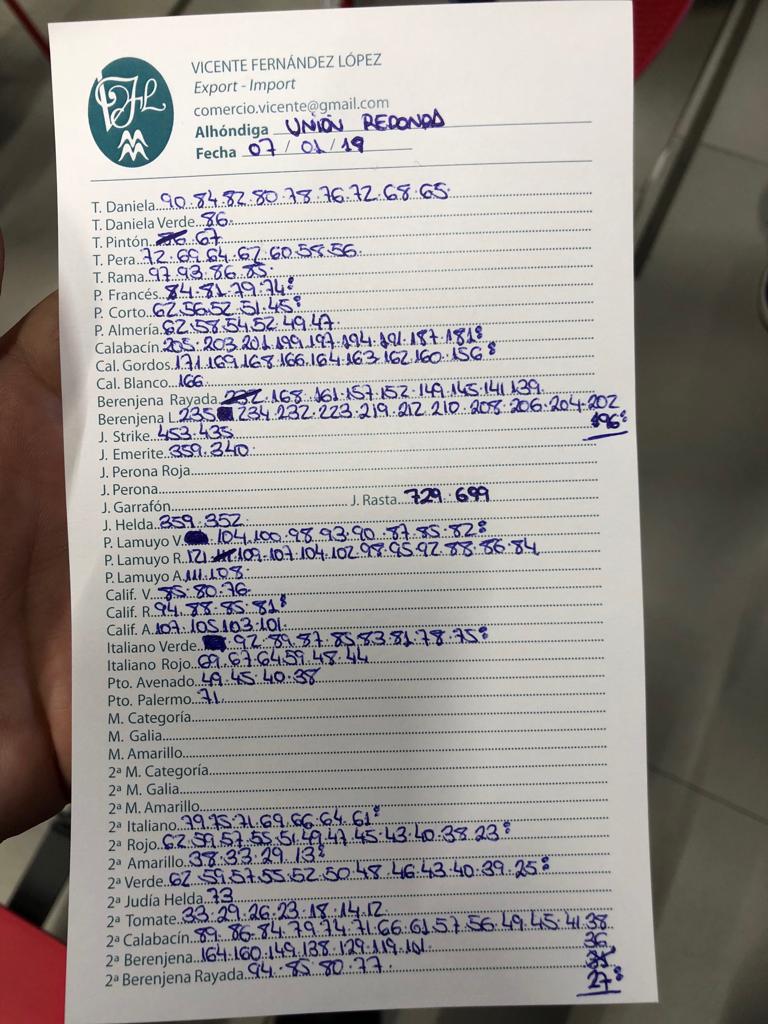 VICENTE FERNÁNDEZ LÓPEZ
Export - Import
comercio.vicente@gmail.com
Alhóndiga UNIÓN REDONDA
Fecha 07/01/19
T. Daniela 90.84.82.80.78.76.72.68.65
T. Daniela Verde 86
T. Pintón 67
T. Pera 72.69.64.62.60.58.56
T. Rama 97.93.86.85
P. Francés 84.81.79.74
P. Corto 62.56.52.51.45
P. Almería 62.58.54.52.49.47
Calabacín 205.203.201.199.197.194.191.187.181
Cal. Gordos 171.169.168.166.164.163.162.160.156
Cal. Blanco 166
Berenjena Rayada 168.161.157.152.149.145.141.139
Berenjena L 235 234.232.223.219.212.210.208.206.204.202
196
J. Strike 453.435
J. Emerite 359.340
J. Perona Roja
J. Perona
J. Garrafón J. Rasta 729.699
J. Helda 359.352
P. Lamuyo V. 104.100.98.93.90.87.85.82
P. Lamuyo R. 121 109.107.104.102.98.95.92.88.86.84
P. Lamuyo A. 111.108
Calif. V. 85.80.76
Calif. R. 94.88.85.81
Calif. A. 107.105.103.101
Italiano Verde 92.89.87.85.83.81.78.75
Italiano Rojo 69.67.64.59.48.44
Pto. Avenado 49.45.40.38
Pto. Palermo 71
M. Categoría
M. Galia
M. Amarillo
2ª M. Categoría
2ª M. Galia
2ª M. Amarillo
2ª Italiano 79.75.71.69.66.64.61
2ª Rojo 62.59.57.55.51.49.47.45.43.40.38.23
2ª Amarillo 38.33.29.13
2ª Verde 62.59.57.55.52.50.48.46.43.40.39.25
2ª Judía Helda 73
2ª Tomate 33.29.26.23.18.14.12
2ª Calabacín 89.86.84.79.74.71.66.61.57.56.49.45.41.38
36
2ª Berenjena 164.160.149.138.129.119.101
2ª Berenjena Rayada 94.85.80.77
27